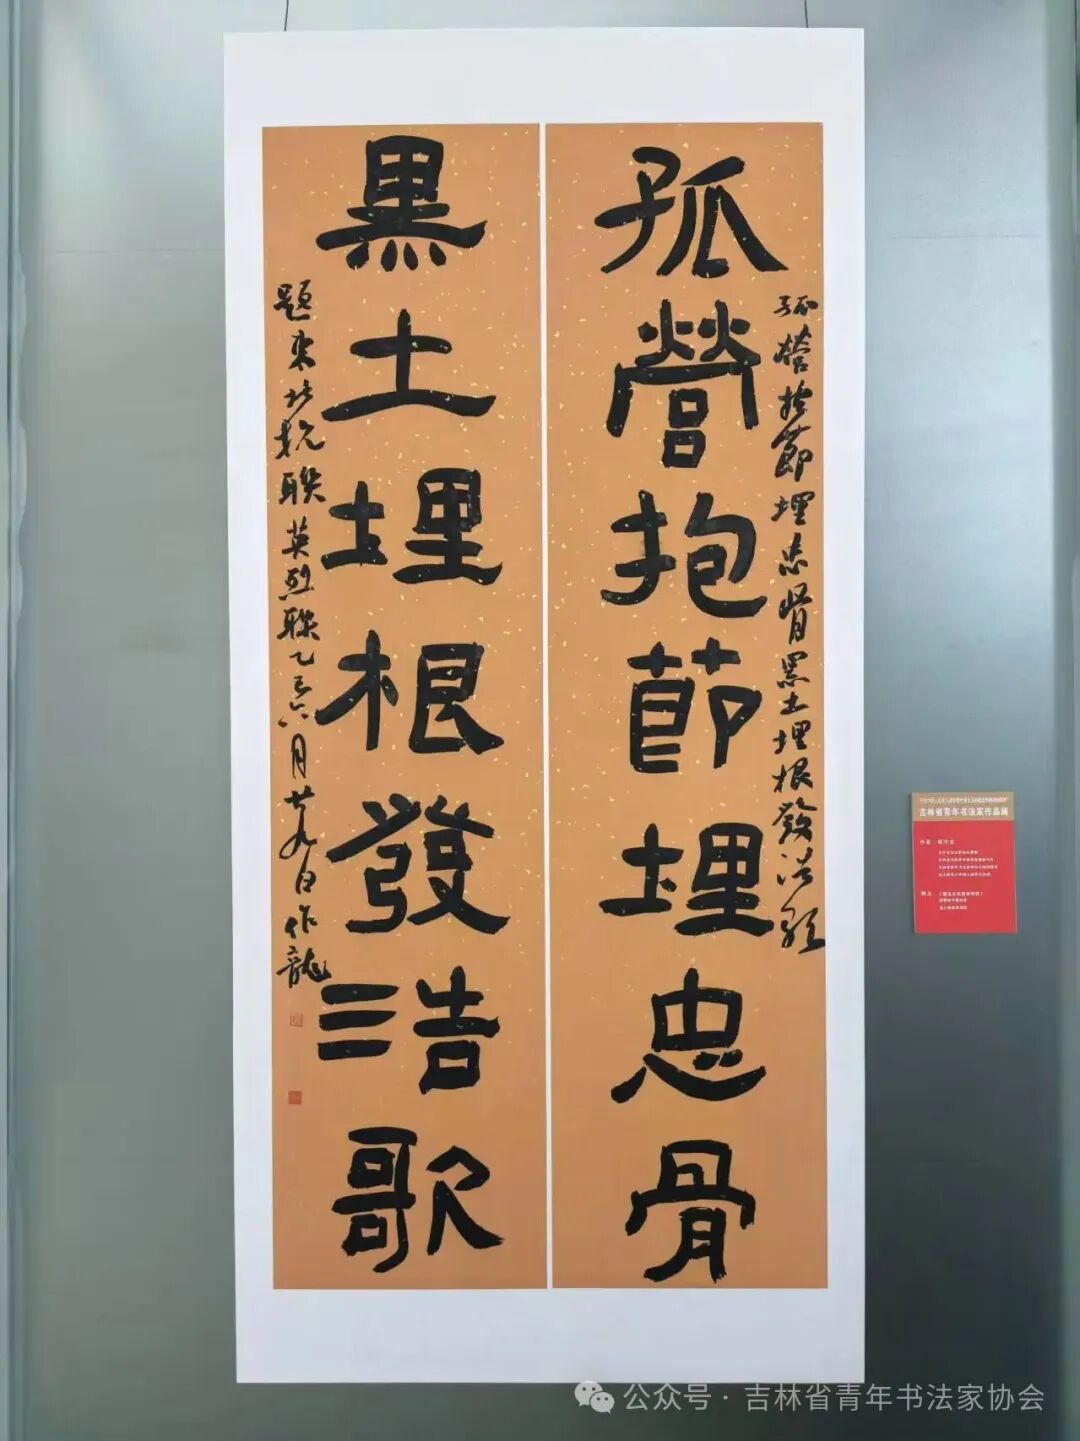 孤營抱節埋忠骨
孤營抱節埋忠骨黑土埋根發浩歌
黑土埋根發浩歌
題東北抗聯英烈聯乙巳六月廿九日作龍
吉林省青年书法家作品展
公众号·吉林省青年书法家协会